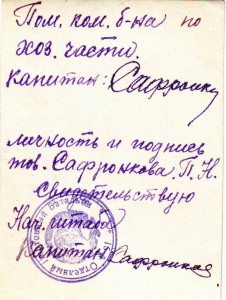 Пом. ком. б-на по
хоз. части.
Капитан: Сафронков
личность и подпись
тов. Сафронкова, П. Н.
Свидетельствую
Нач. штаба
Капитан
Отдельный
батальон